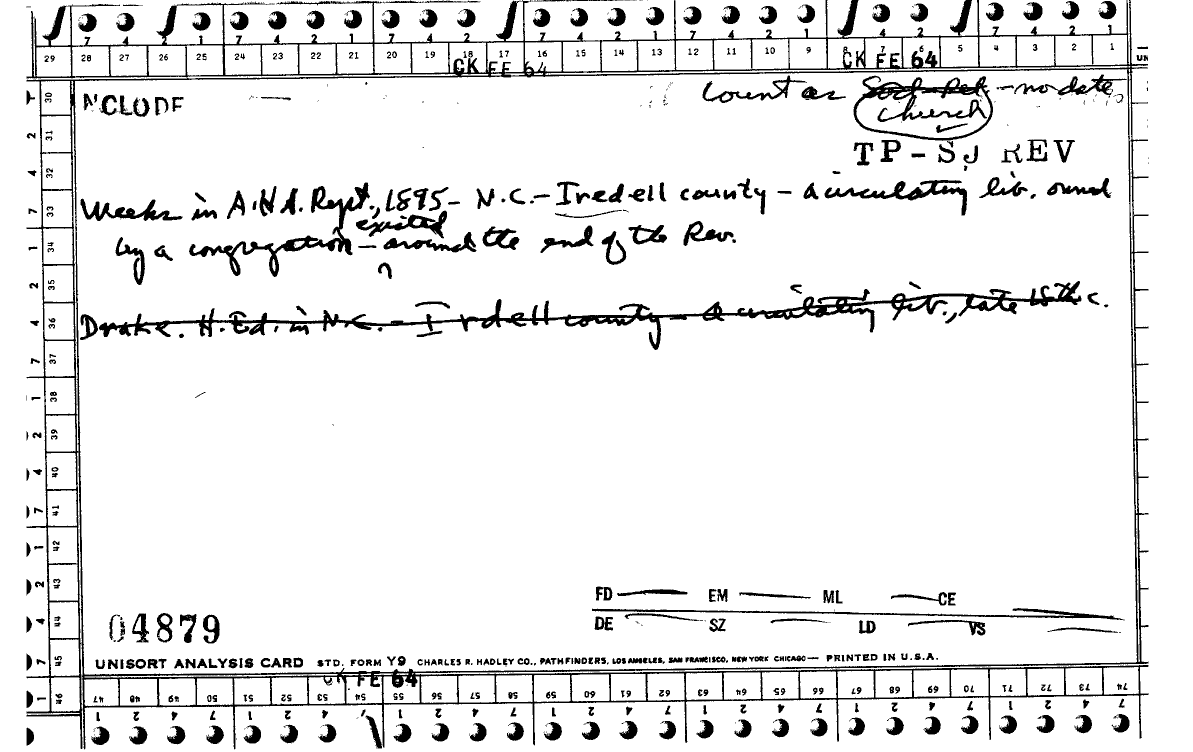 7 4 2 1 7 4 2 1 7 4 2 17 7 4 2 1 7 4 2 1 7 4 2 1 7 4 2 1
29 28 27 26 25 24 23 22 21 20 19 18 17 16 15 14 13 12 11 10 9 8 7 6 5 4 3 2 1
CK FE 64 CK FE 64
NCLODE
Count as Socl-Pet - no date
church
TP-SJ REV
Weeks in A.H.A. Rept., 1895 - N.C. - Iredell county - a circulating lib. owned
existed
by a congregation - around the end of the Rev.
?
Drake. H. Ed. in N.C. - Irdell county - a circulating lib., late 18th c.
30 31 32 33 34 35 36 37 38 39 40 41 42 43 44 45 46
FD EM ML CE
DE SZ LD VS
04879
UNISORT ANALYSIS CARD STD. FORM Y9 CHARLES R. HADLEY CO., PATHFINDERS, LOS ANGELES, SAN FRANCISCO, NEW YORK CHICAGO — PRINTED IN U.S.A.
CK FE 64
47 48 49 50 51 52 53 54 55 56 57 58 59 60 61 62 63 64 65 66 67 68 69 70 71 72 73 74
1 2 4 7 1 2 4 7 1 2 4 7 1 2 4 7 1 2 4 7 1 2 4 7 1 2 4 7